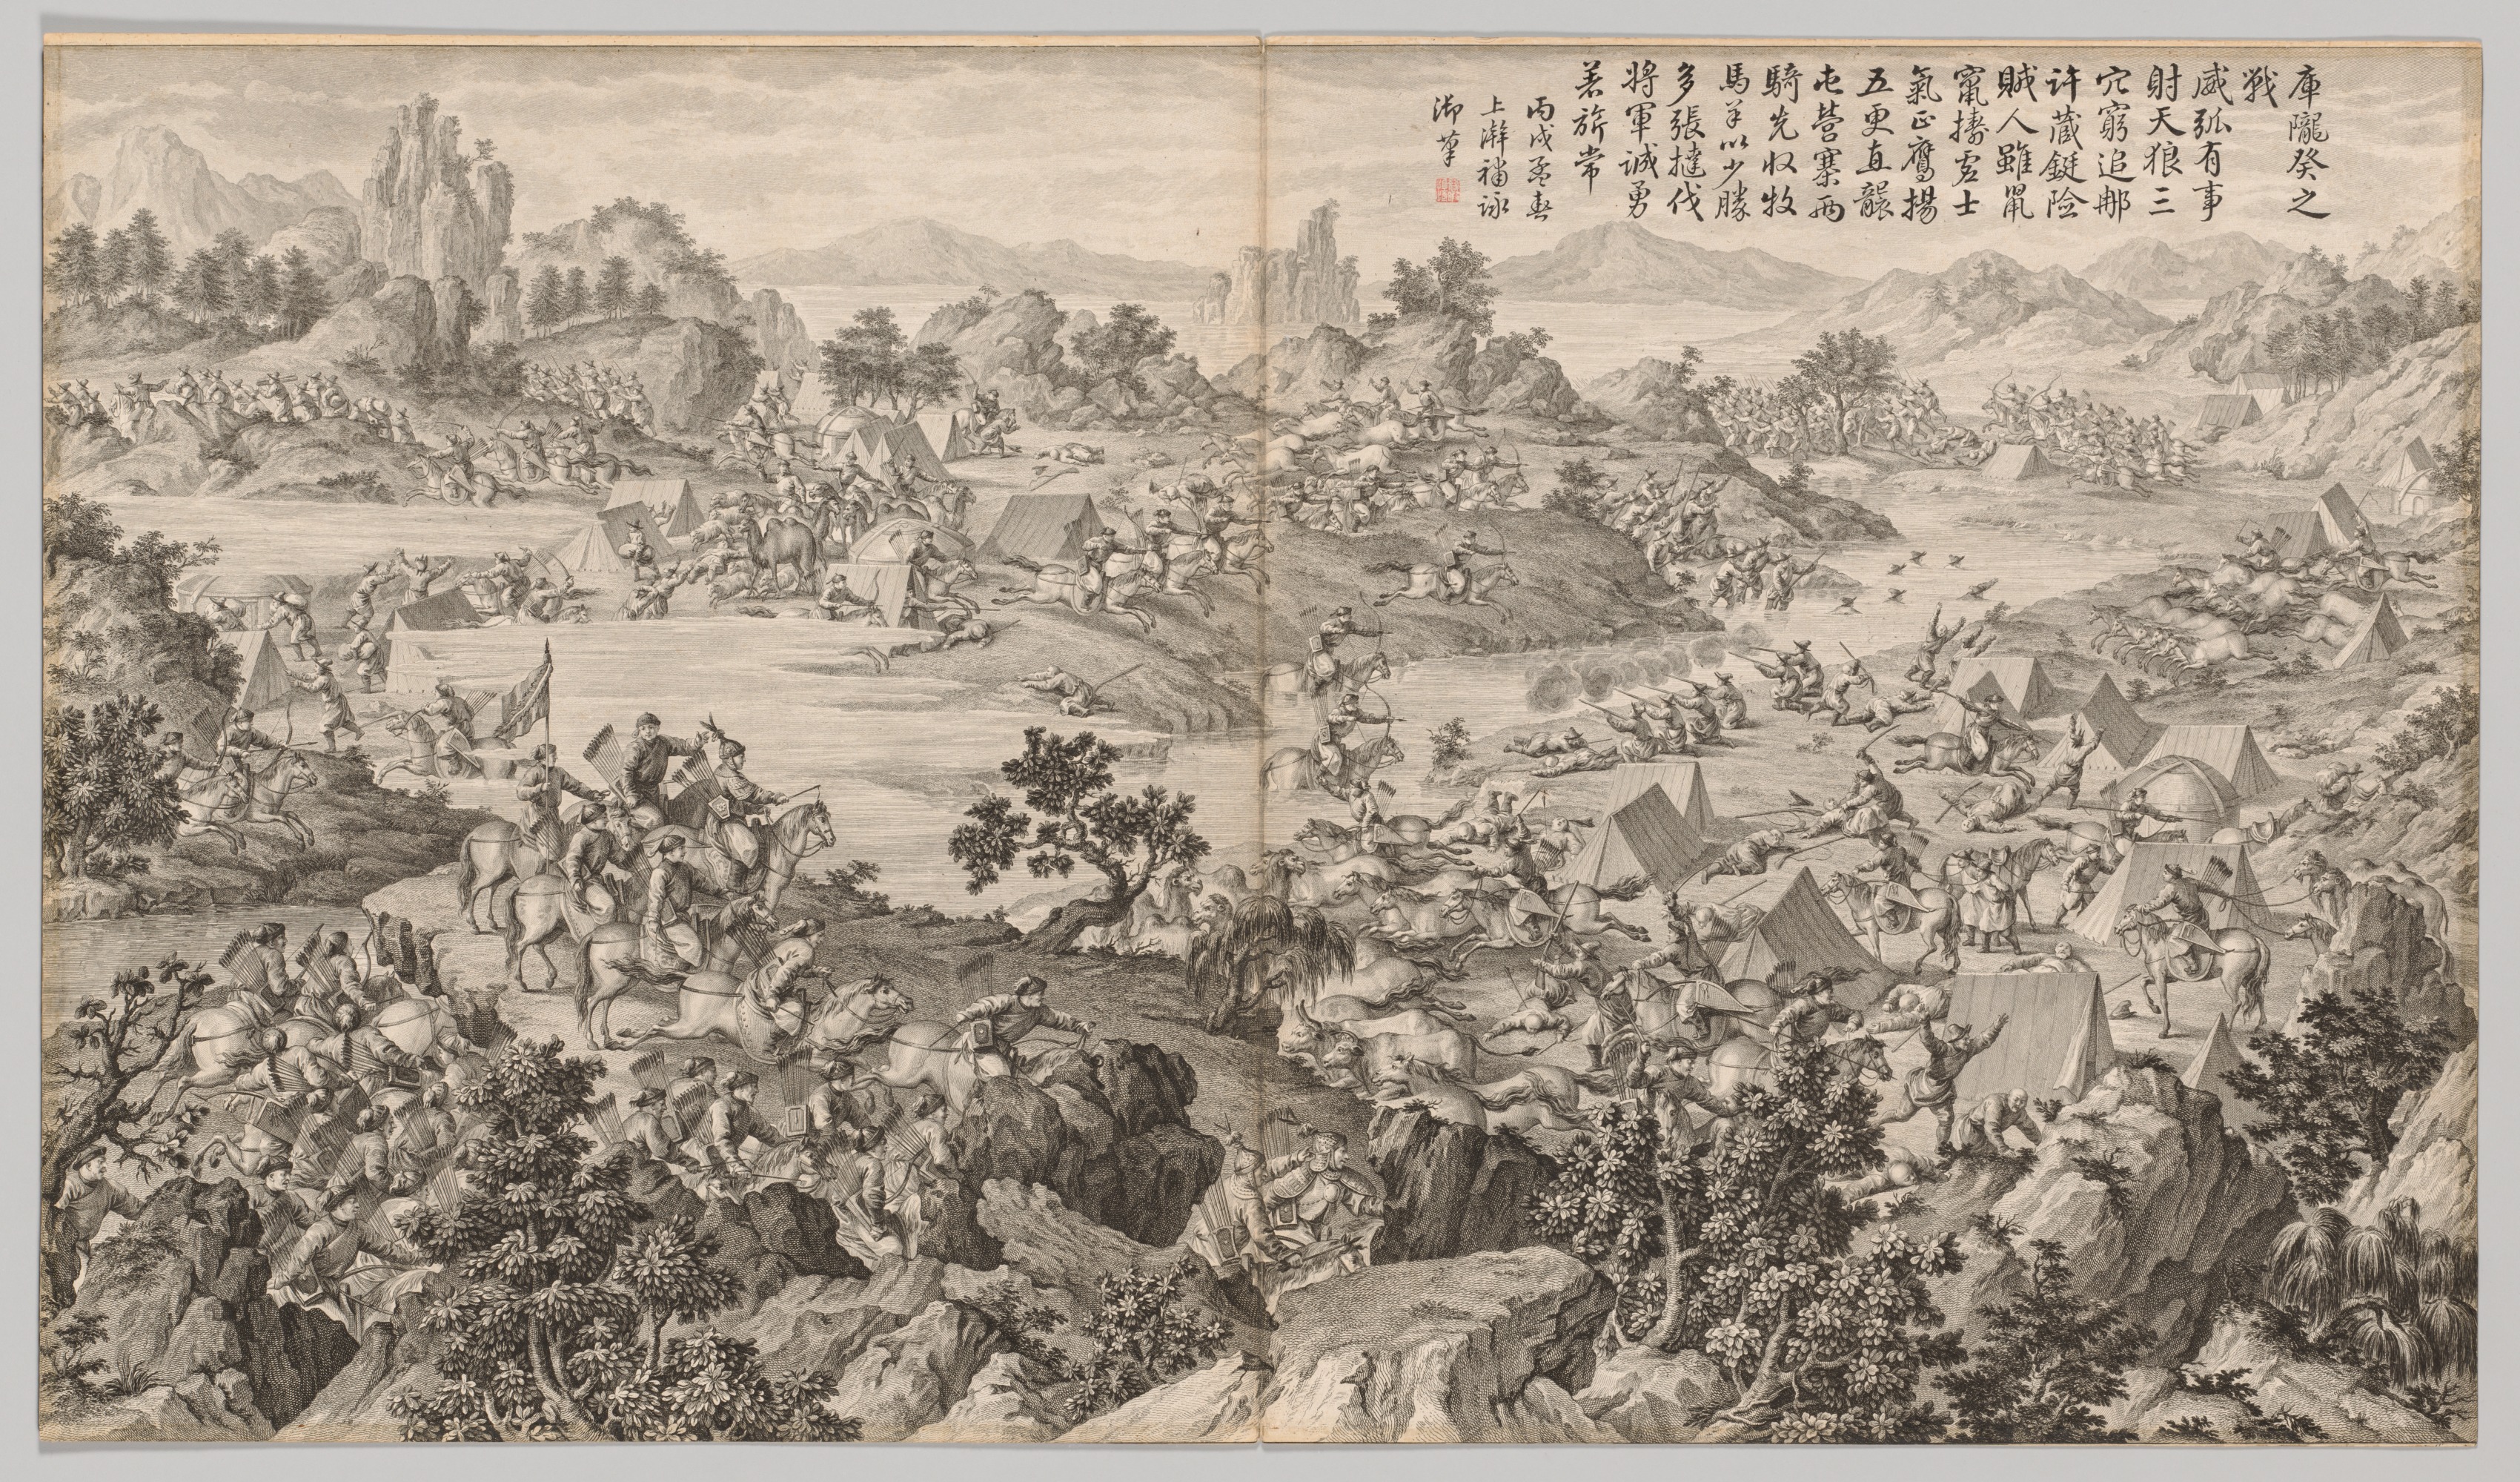 庫隴癸之
戰
威弧有事
射天狼三
穴窮追那
許蔵鋌險
賊人雖鼠
竄擣虛士
氣正鷹揚
五更直襲
屯營寨兩
騎先收牧
馬羊以少勝
多張撻伐
將軍誠勇
著旂常
丙戌孟春
上澣補詠
御筆